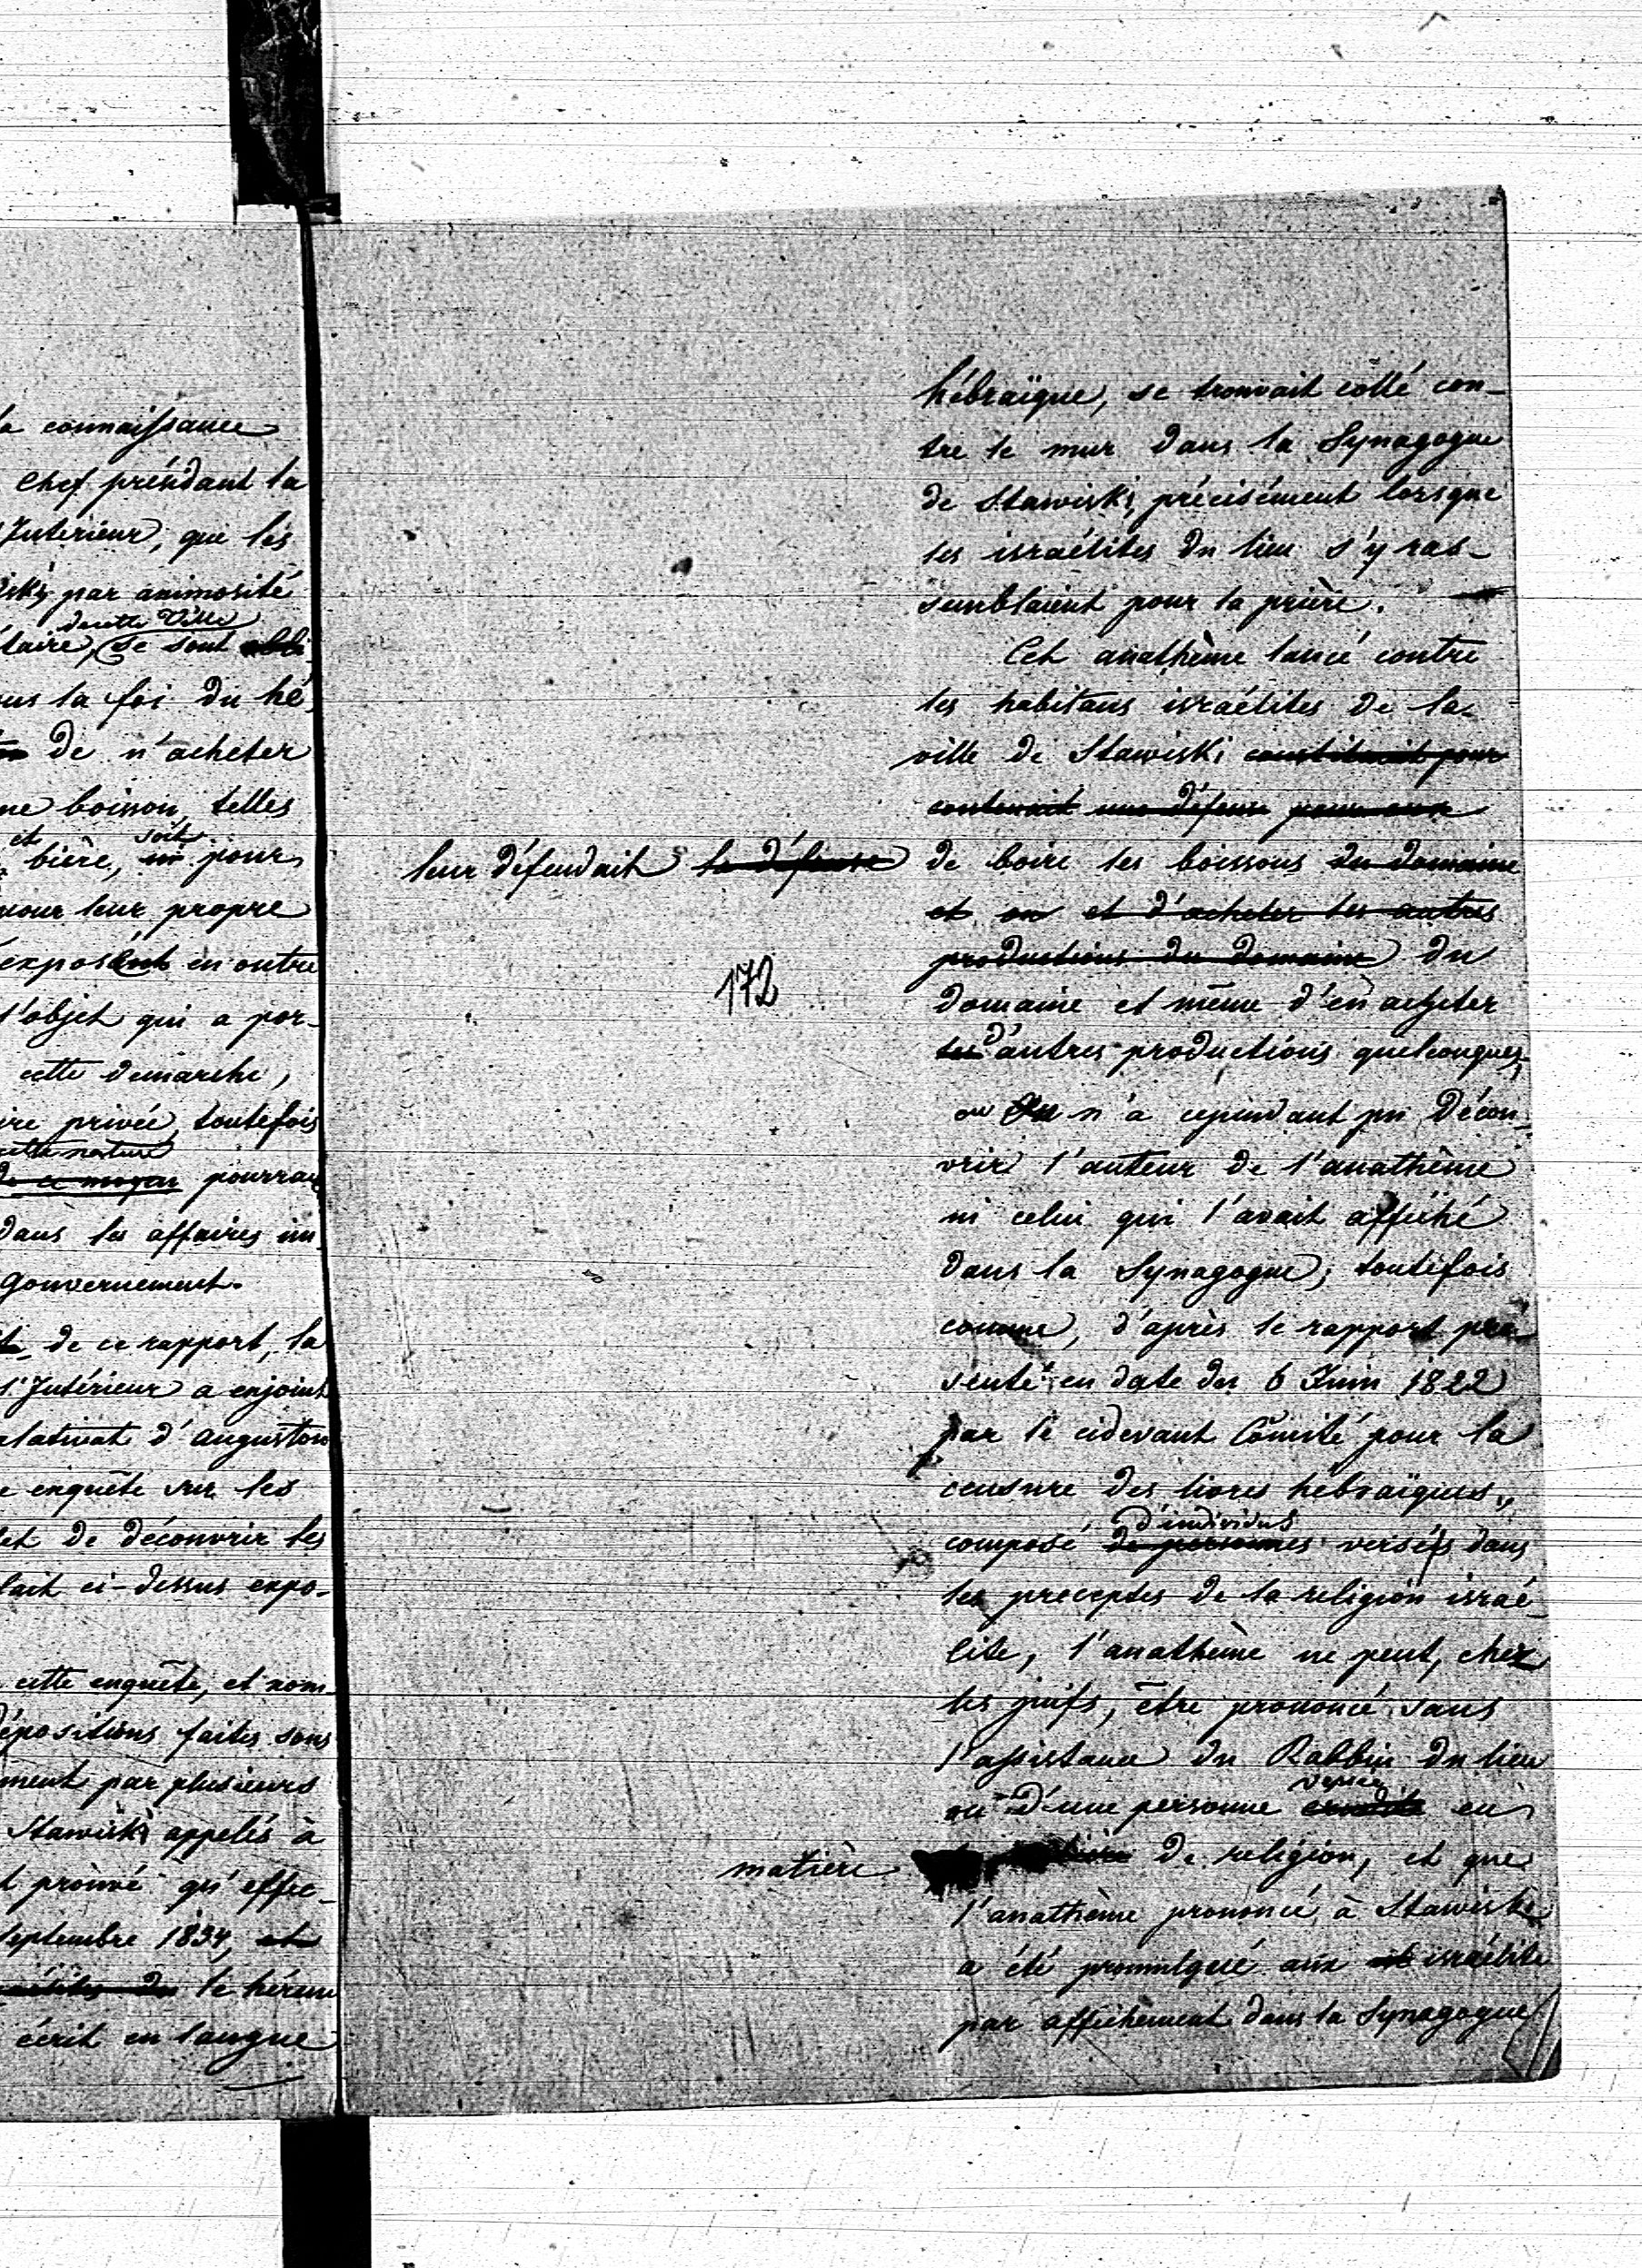 a connaissance
Chef présidant la
Intérieur, que les
iski par animosité
de cette Ville
taire, se sont obli
ous la foi du hé
de n'acheter
ne boisson, telles
et soit
bière, ni pour
pour leur propre
exposent en outre
l'objet qui a por-
cette demarche,
ire privée, toutefois
cette nature
de ce moyen pourrai
dans les affaires im
Gouvernement.
de ce rapport, la
l'Intérieur a enjoint
alatinat d'Augustow
e enquête sur les
et de découvrir les
fait ci-dessus expo-
cette enquête, et nom
épositions faites sous
ment par plusieurs
Stawiski appelés à
t prouvé qu'effec-
Septembre 1834, et
le hérem
écrit en langue
hébraïque, se trouvait collé con-
tre le mur dans la Synagogue
de Stawiski, précisément lorsque
les israélites du lieu s'y ras-
semblaient pour la prière.
Cet anathème lancé contre
les habitans israélites de la
ville de Stawiski constituait pour
contenait une défense pour eux
leur défendait la défense de boire les boissons du domaine
et ou et d'acheter les autres
productions du domaine du
172
domaine et même d'en acheter
les d'autres productions quelconques,
ou On n'a cependant pu décou-
vrir l'auteur de l'anathème
ni celui qui l'avait affiché
dans la Synagogue; toutefois
comme, d'après le rapport pré-
senté en date du 6 Juin 1822
par le cidevant Comité pour la
censure des livres hebraïques,
d'individus
composé de personnes versés dans
les preceptes de la religion israé-
lite, l'anathème ne peut, chez
les juifs, être prononcé sans
l'assistance du Rabbin du lieu
versée
ou d'une personne érudite en
matière de religion, et que
l'anathème prononcé à Stawiski
a été promulgué aux israélite
par affichement dans la Synagogue